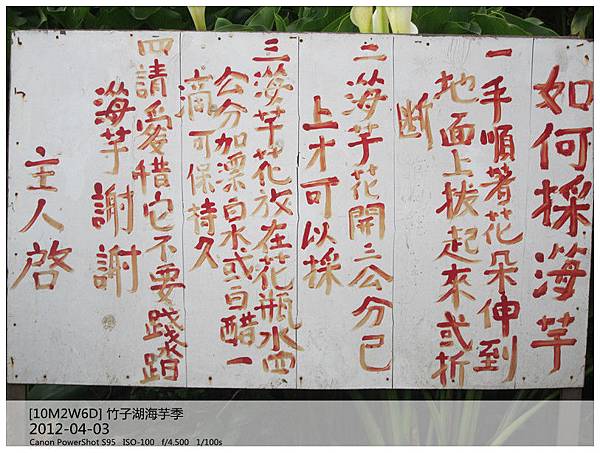 如何採海芋
一手順著花朵伸到
地面上拔起來或折
斷
二海芋花開二公分已
上才可以採
三海芋花放在花瓶水四
公分加漂白水或白醋一
滴可保持久
四請愛惜它不要踐踏
海芋謝謝
主人啓
[10M2W6D] 竹子湖海芋季
2012-04-03
Canon PowerShot S95 ISO-100 f/4.500 1/100s